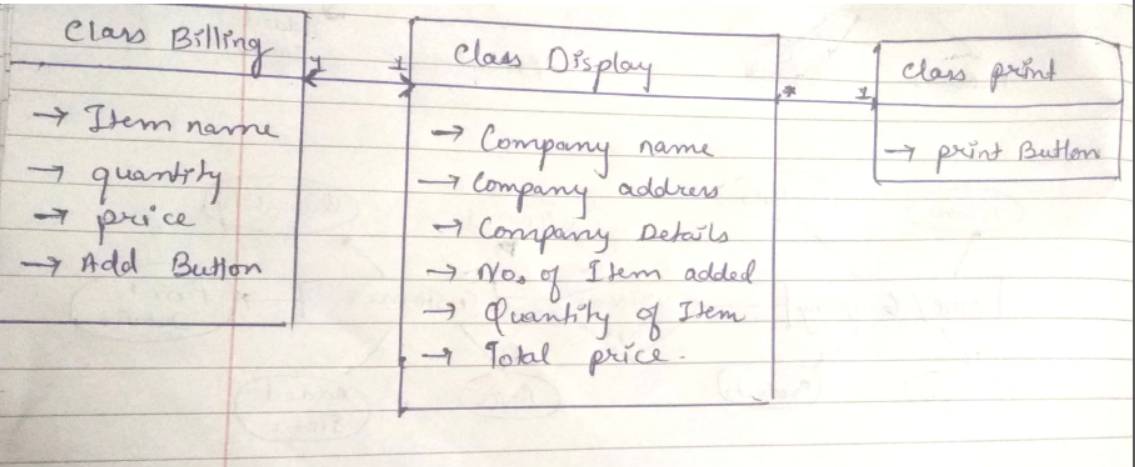 Class Billing
1 1
→ Item name
→ quantity
→ price
→ Add Button
Class Display
* 1
→ Company name
→ Company address
→ Company Details
→ No. of Item added
→ Quantity of Item
→ Total price.
Class print
→ print Button